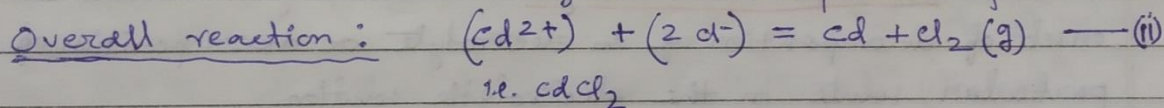 Overall reaction : (cd2+) + (2 cl-) = cd + cl2 (g) — (ii)
i.e. cdcl2